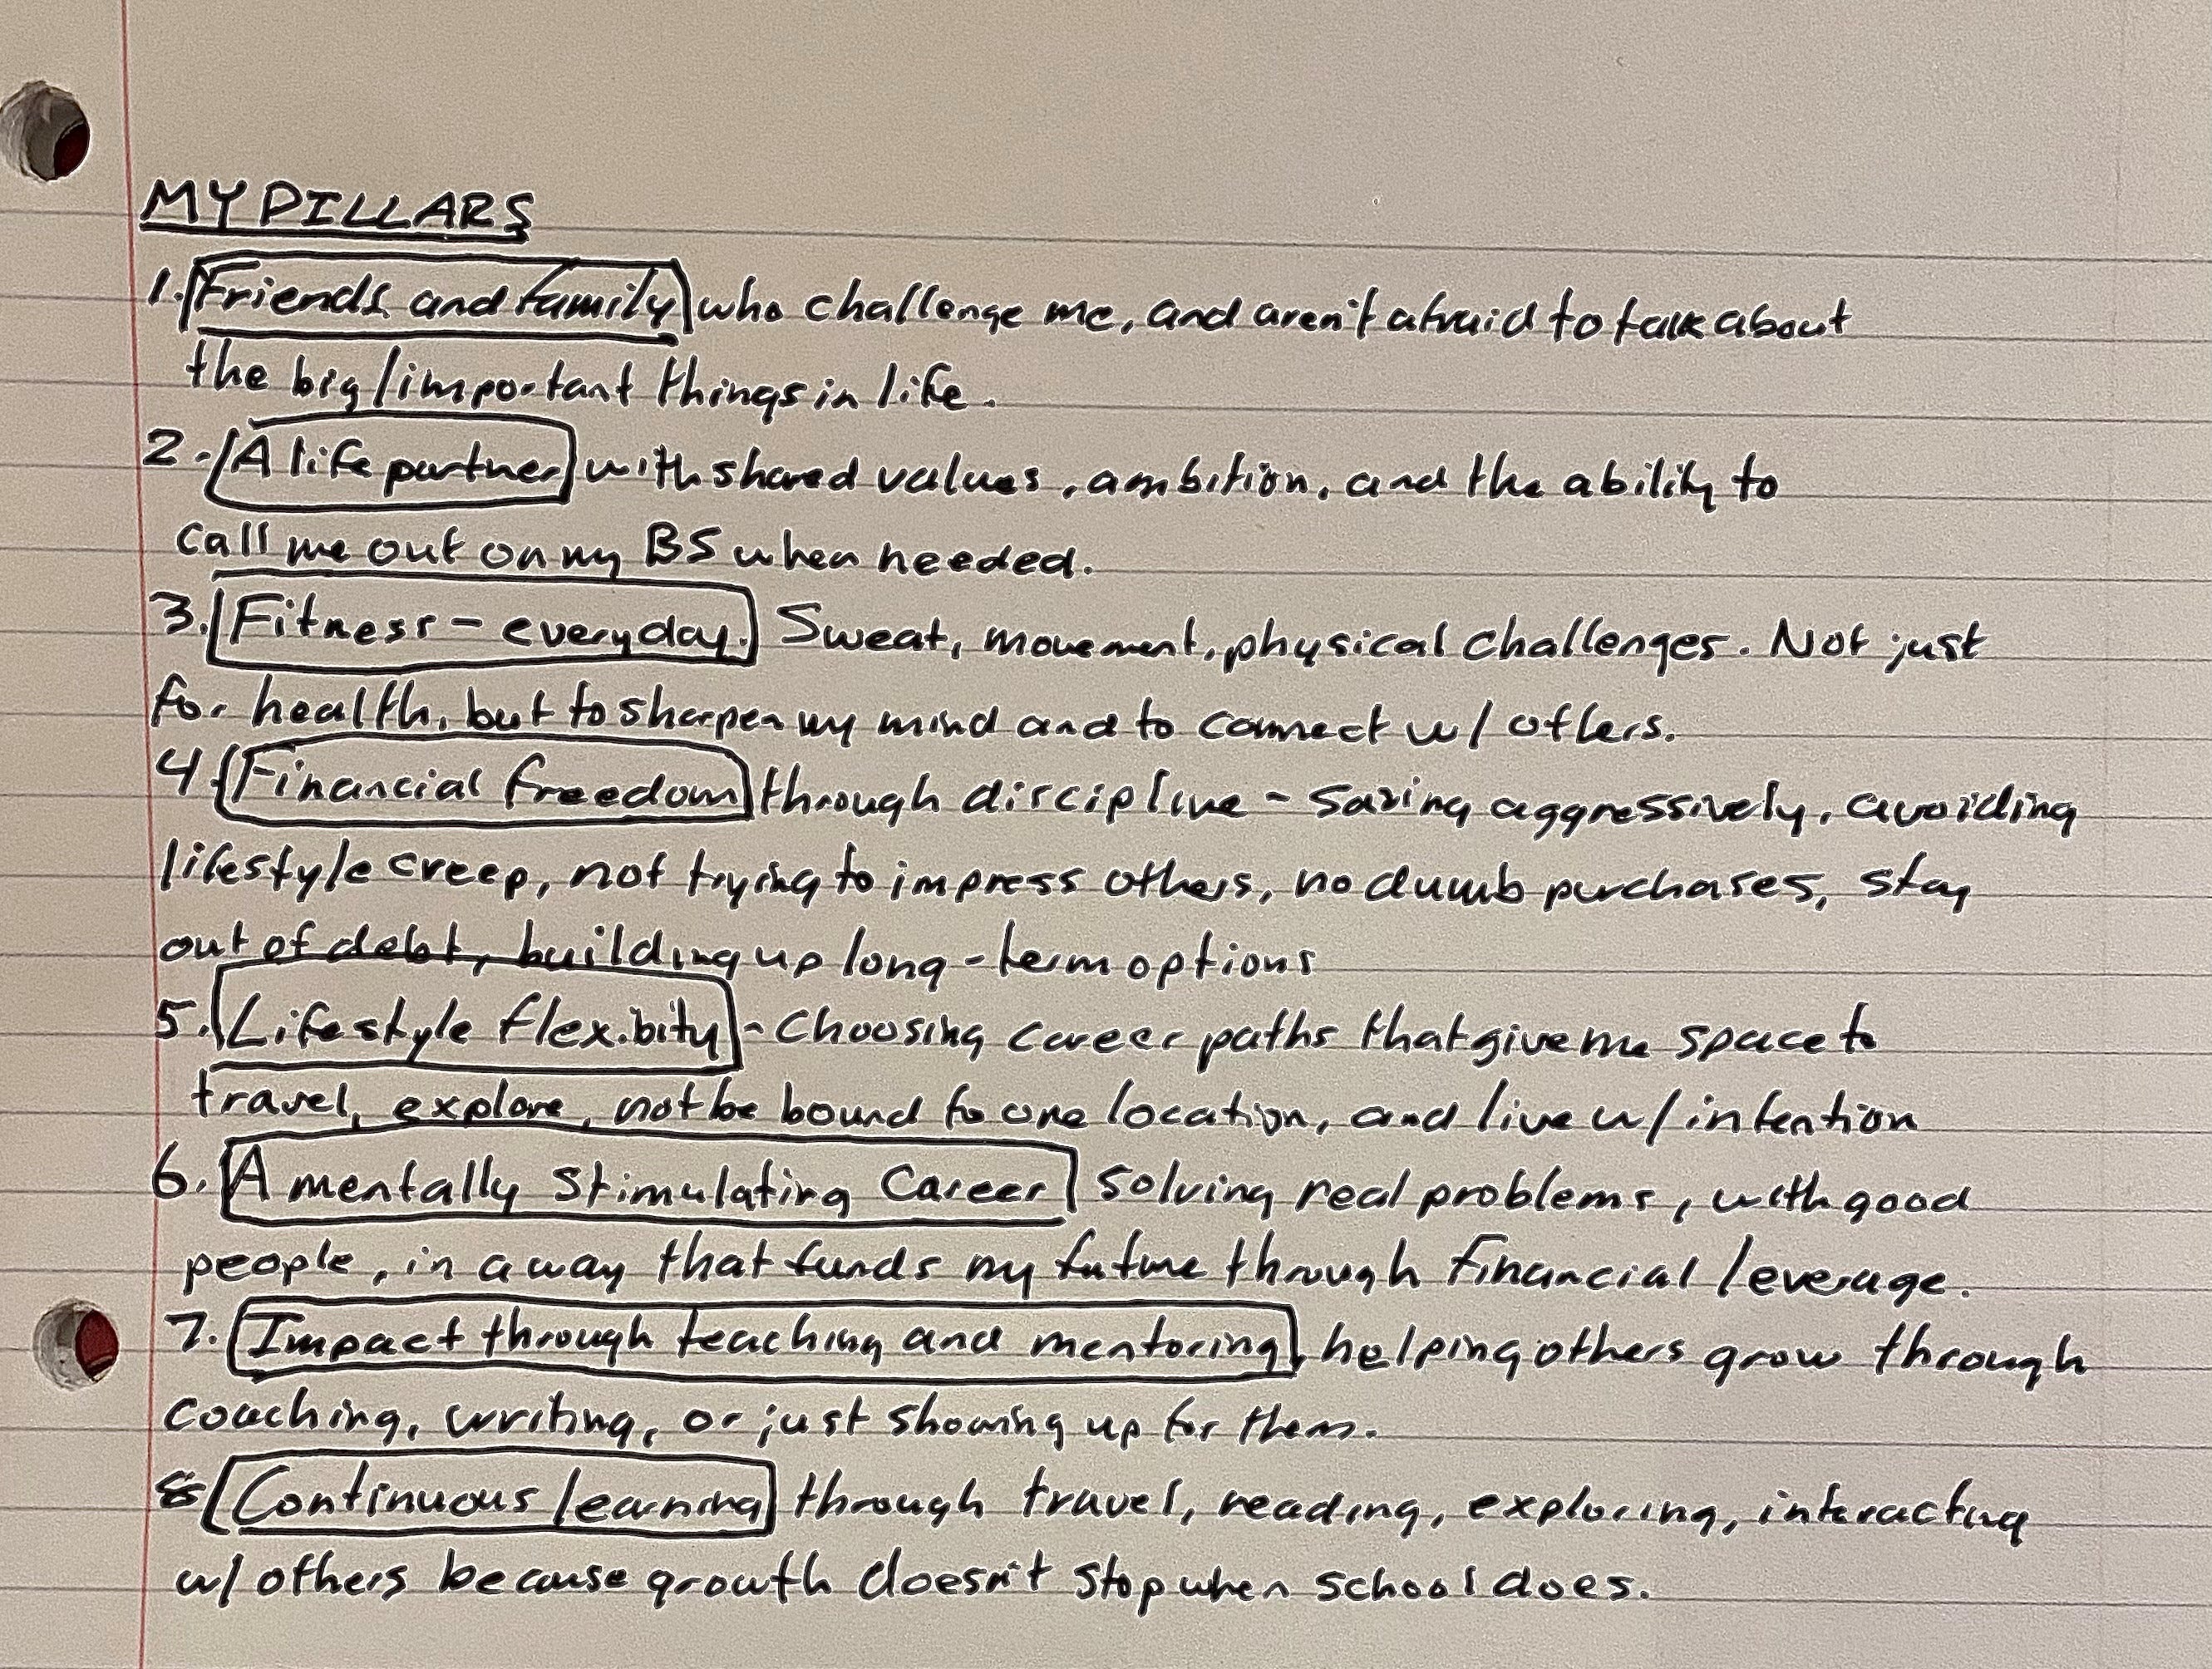 MY PILLARS
1. Friends and family who challenge me, and aren't afraid to talk about
the big/important things in life.
2. A life partner with shared values, ambition, and the ability to
call me out on my BS when needed.
3. Fitness - everyday. Sweat, movement, physical challenges. Not just
for health, but to sharpen my mind and to connect w/ others.
4. Financial freedom through discipline - saving aggressively, avoiding
lifestyle creep, not trying to impress others, no dumb purchases, stay
out of debt, building up long-term options
5. Lifestyle flexibity - Choosing career paths that give me space to
travel, explore, not be bound to one location, and live w/ intention
6. A mentally stimulating Career solving real problems, with good
people, in a way that funds my future through financial leverage.
7. Impact through teaching and mentoring, helping others grow through
coaching, writing, or just showing up for them.
8 Continuous learning through travel, reading, exploring, interacting
w/ others because growth doesn't stop when school does.